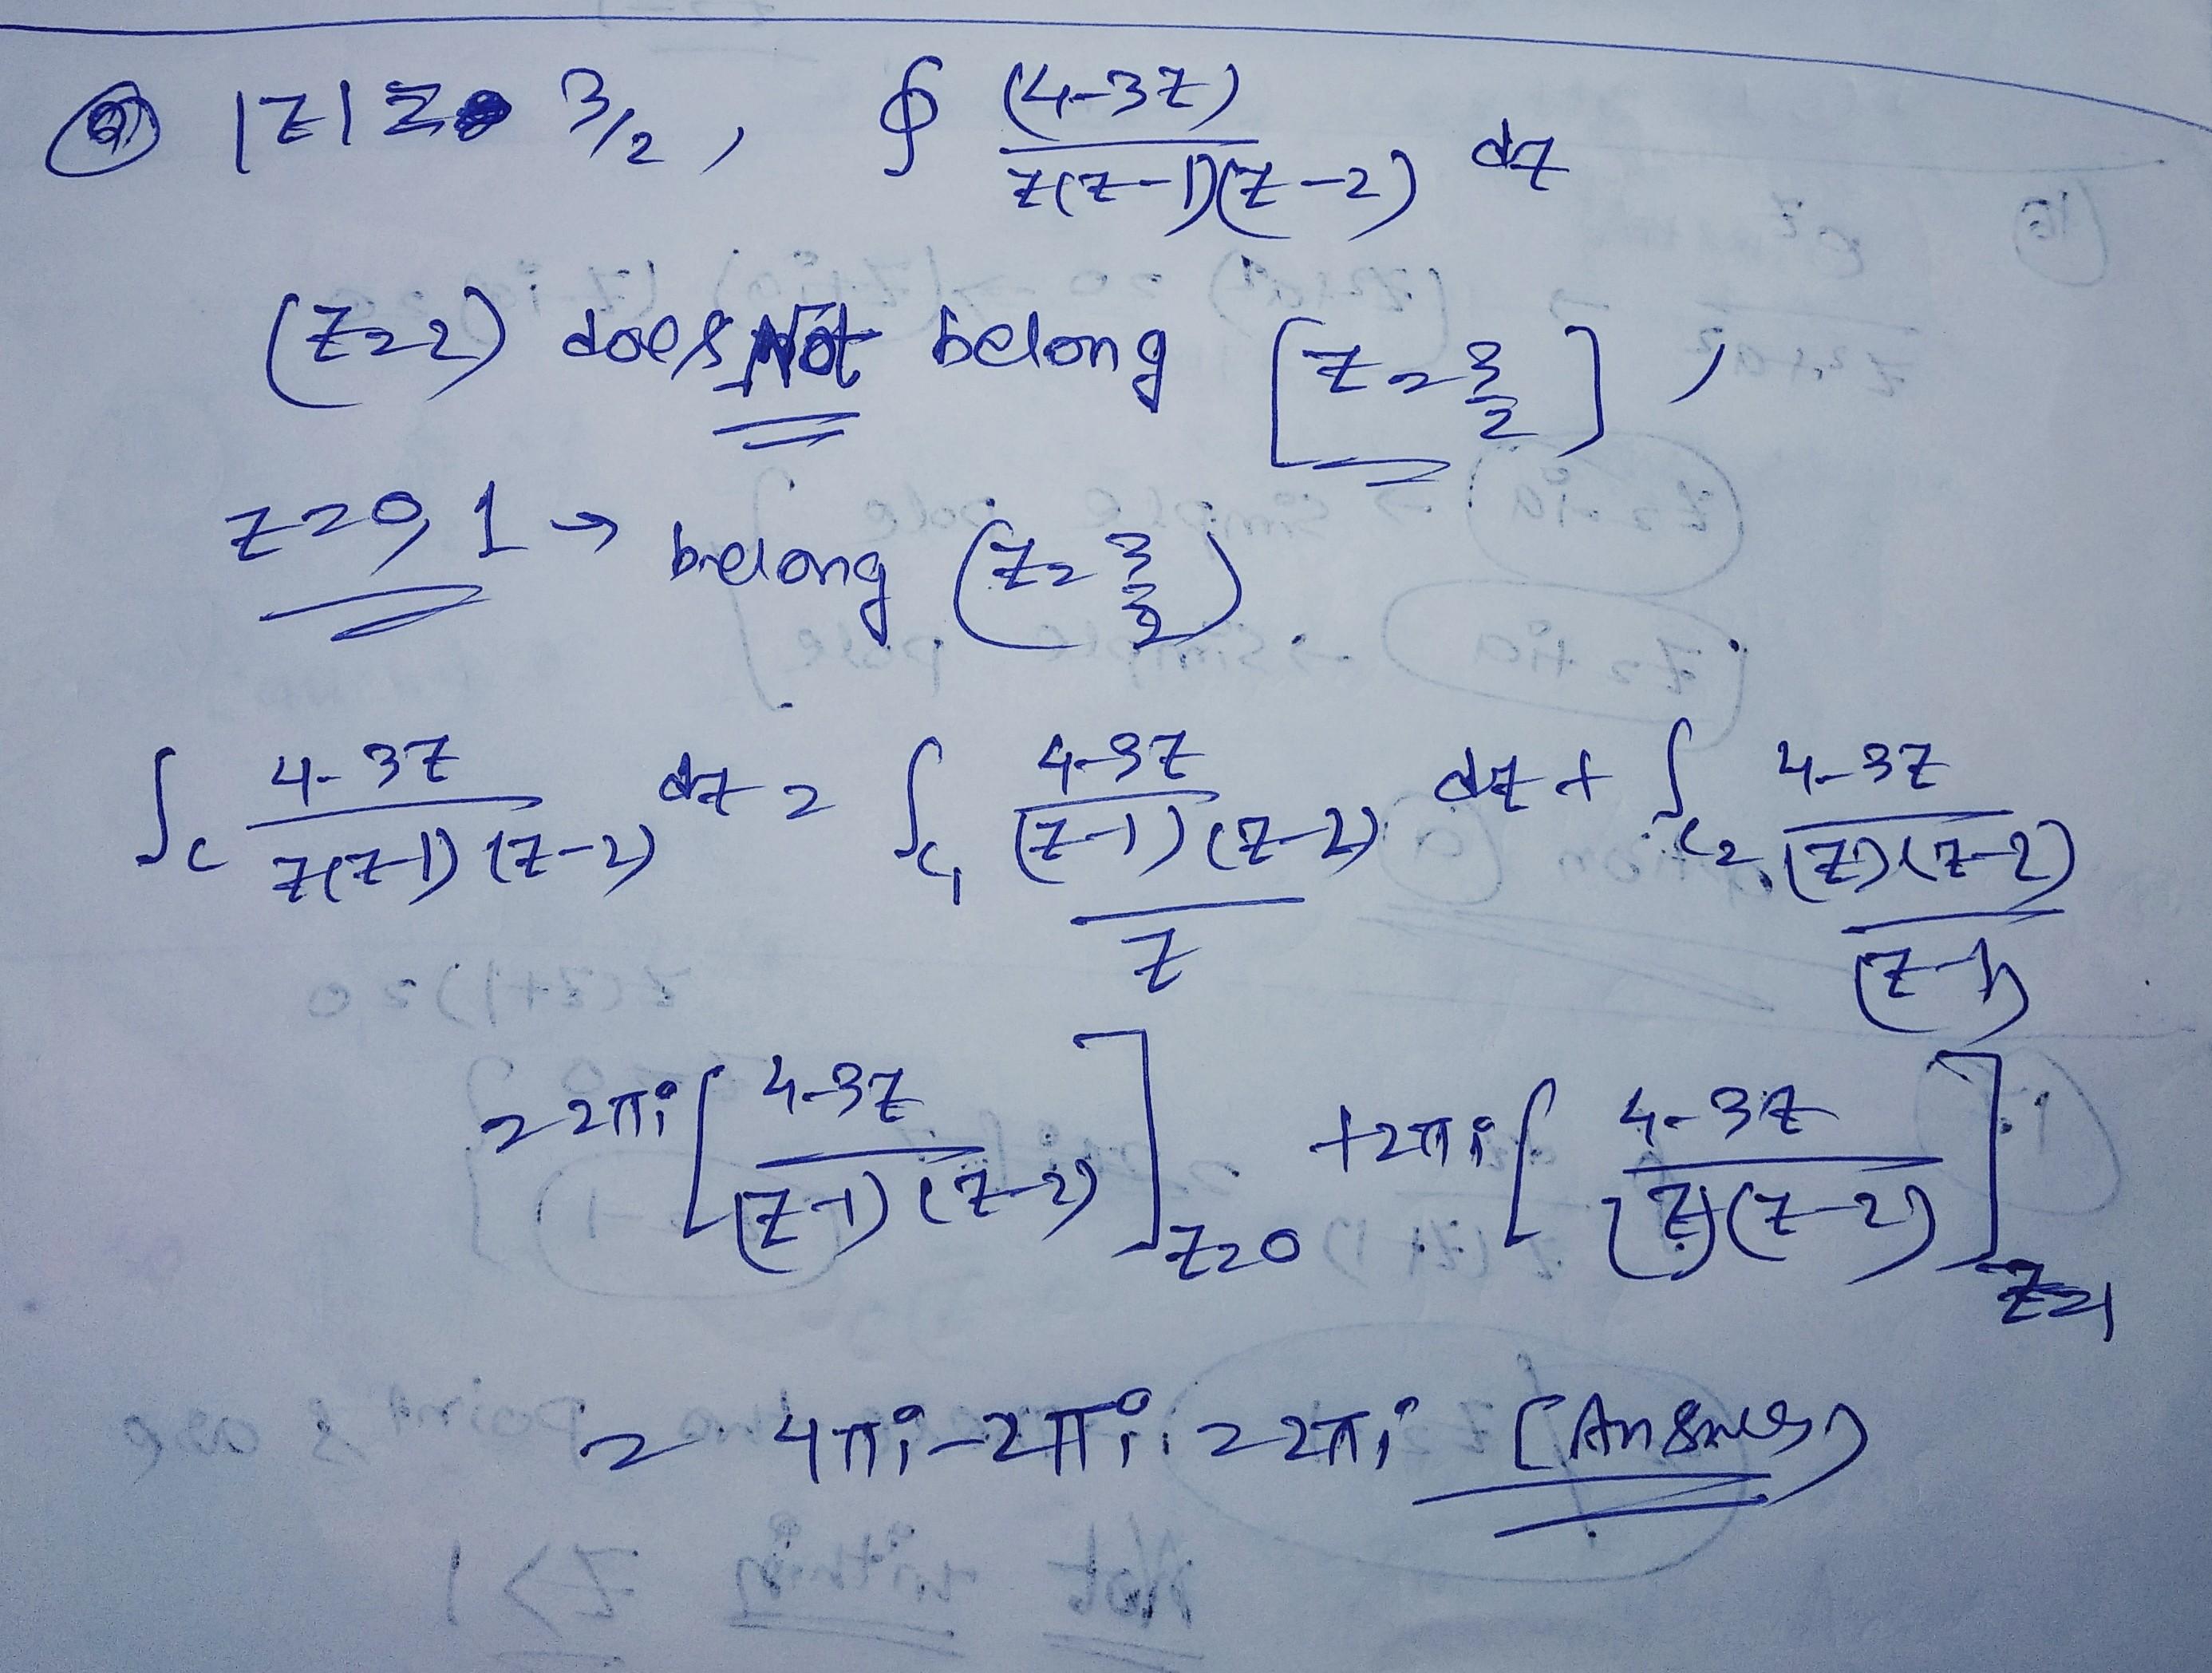 Q) |z| = 3/2, ∮ (4-3z) / z(z-1)(z-2) dz
(z=2) does Not belong [z=3/2],
z=0, 1 → belong (z=3/2)
∫c 4-3z / z(z-1)(z-2) dz = ∫c₁ (4-3z / (z-1)(z-2)) / z dz + ∫c₂ (4-3z / (z)(z-2)) / (z-1)
= 2πi [4-3z / (z-1)(z-2)] z=0 + 2πi [4-3z / (z)(z-2)] z=1
= 4πi - 2πi = 2πi (Answer)